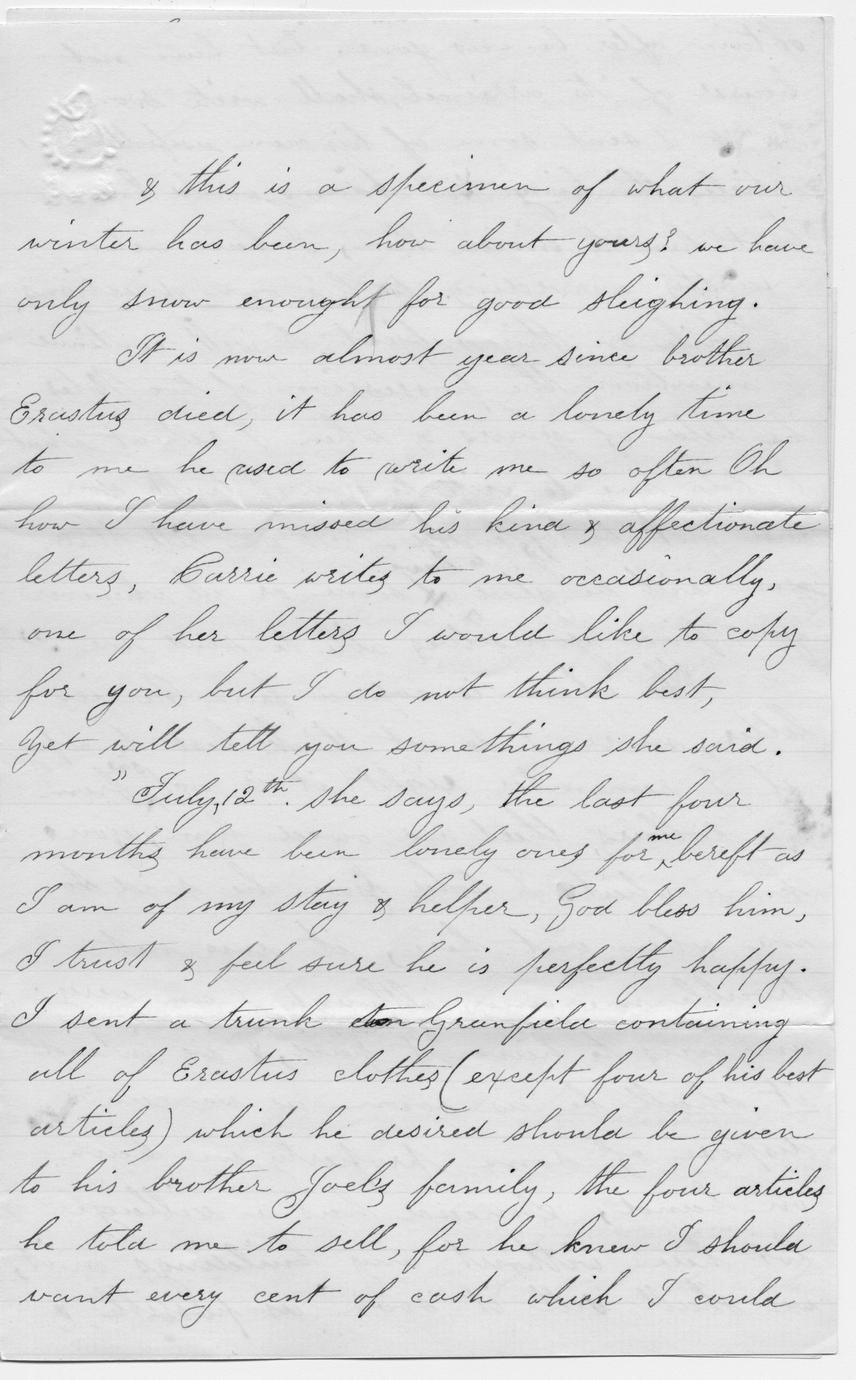 & this is a specimen of what our
winter has been, how about yours? we have
only snow enought for good sleighing.
It is now almost year since brother
Erastus died, it has been a lonely time
to me he used to write me so often Oh
how I have missed his kind & affectionate
letters, Carrie writes to me occasionally,
one of her letters I would like to copy
for you, but I do not think best,
Yet will tell you somethings she said.
"July, 12th. she says, the last four
months have been lonely ones for me, bereft as
I am of my stay & helper, God bless him,
I trust & feel sure he is perfectly happy.
I sent a trunk Grenfield containing
all of Erastus clothes (except four of his best
articles) which he desired should be given
to his brother Joels family, the four articles
he told me to sell, for he knew I should
want every cent of cash which I could